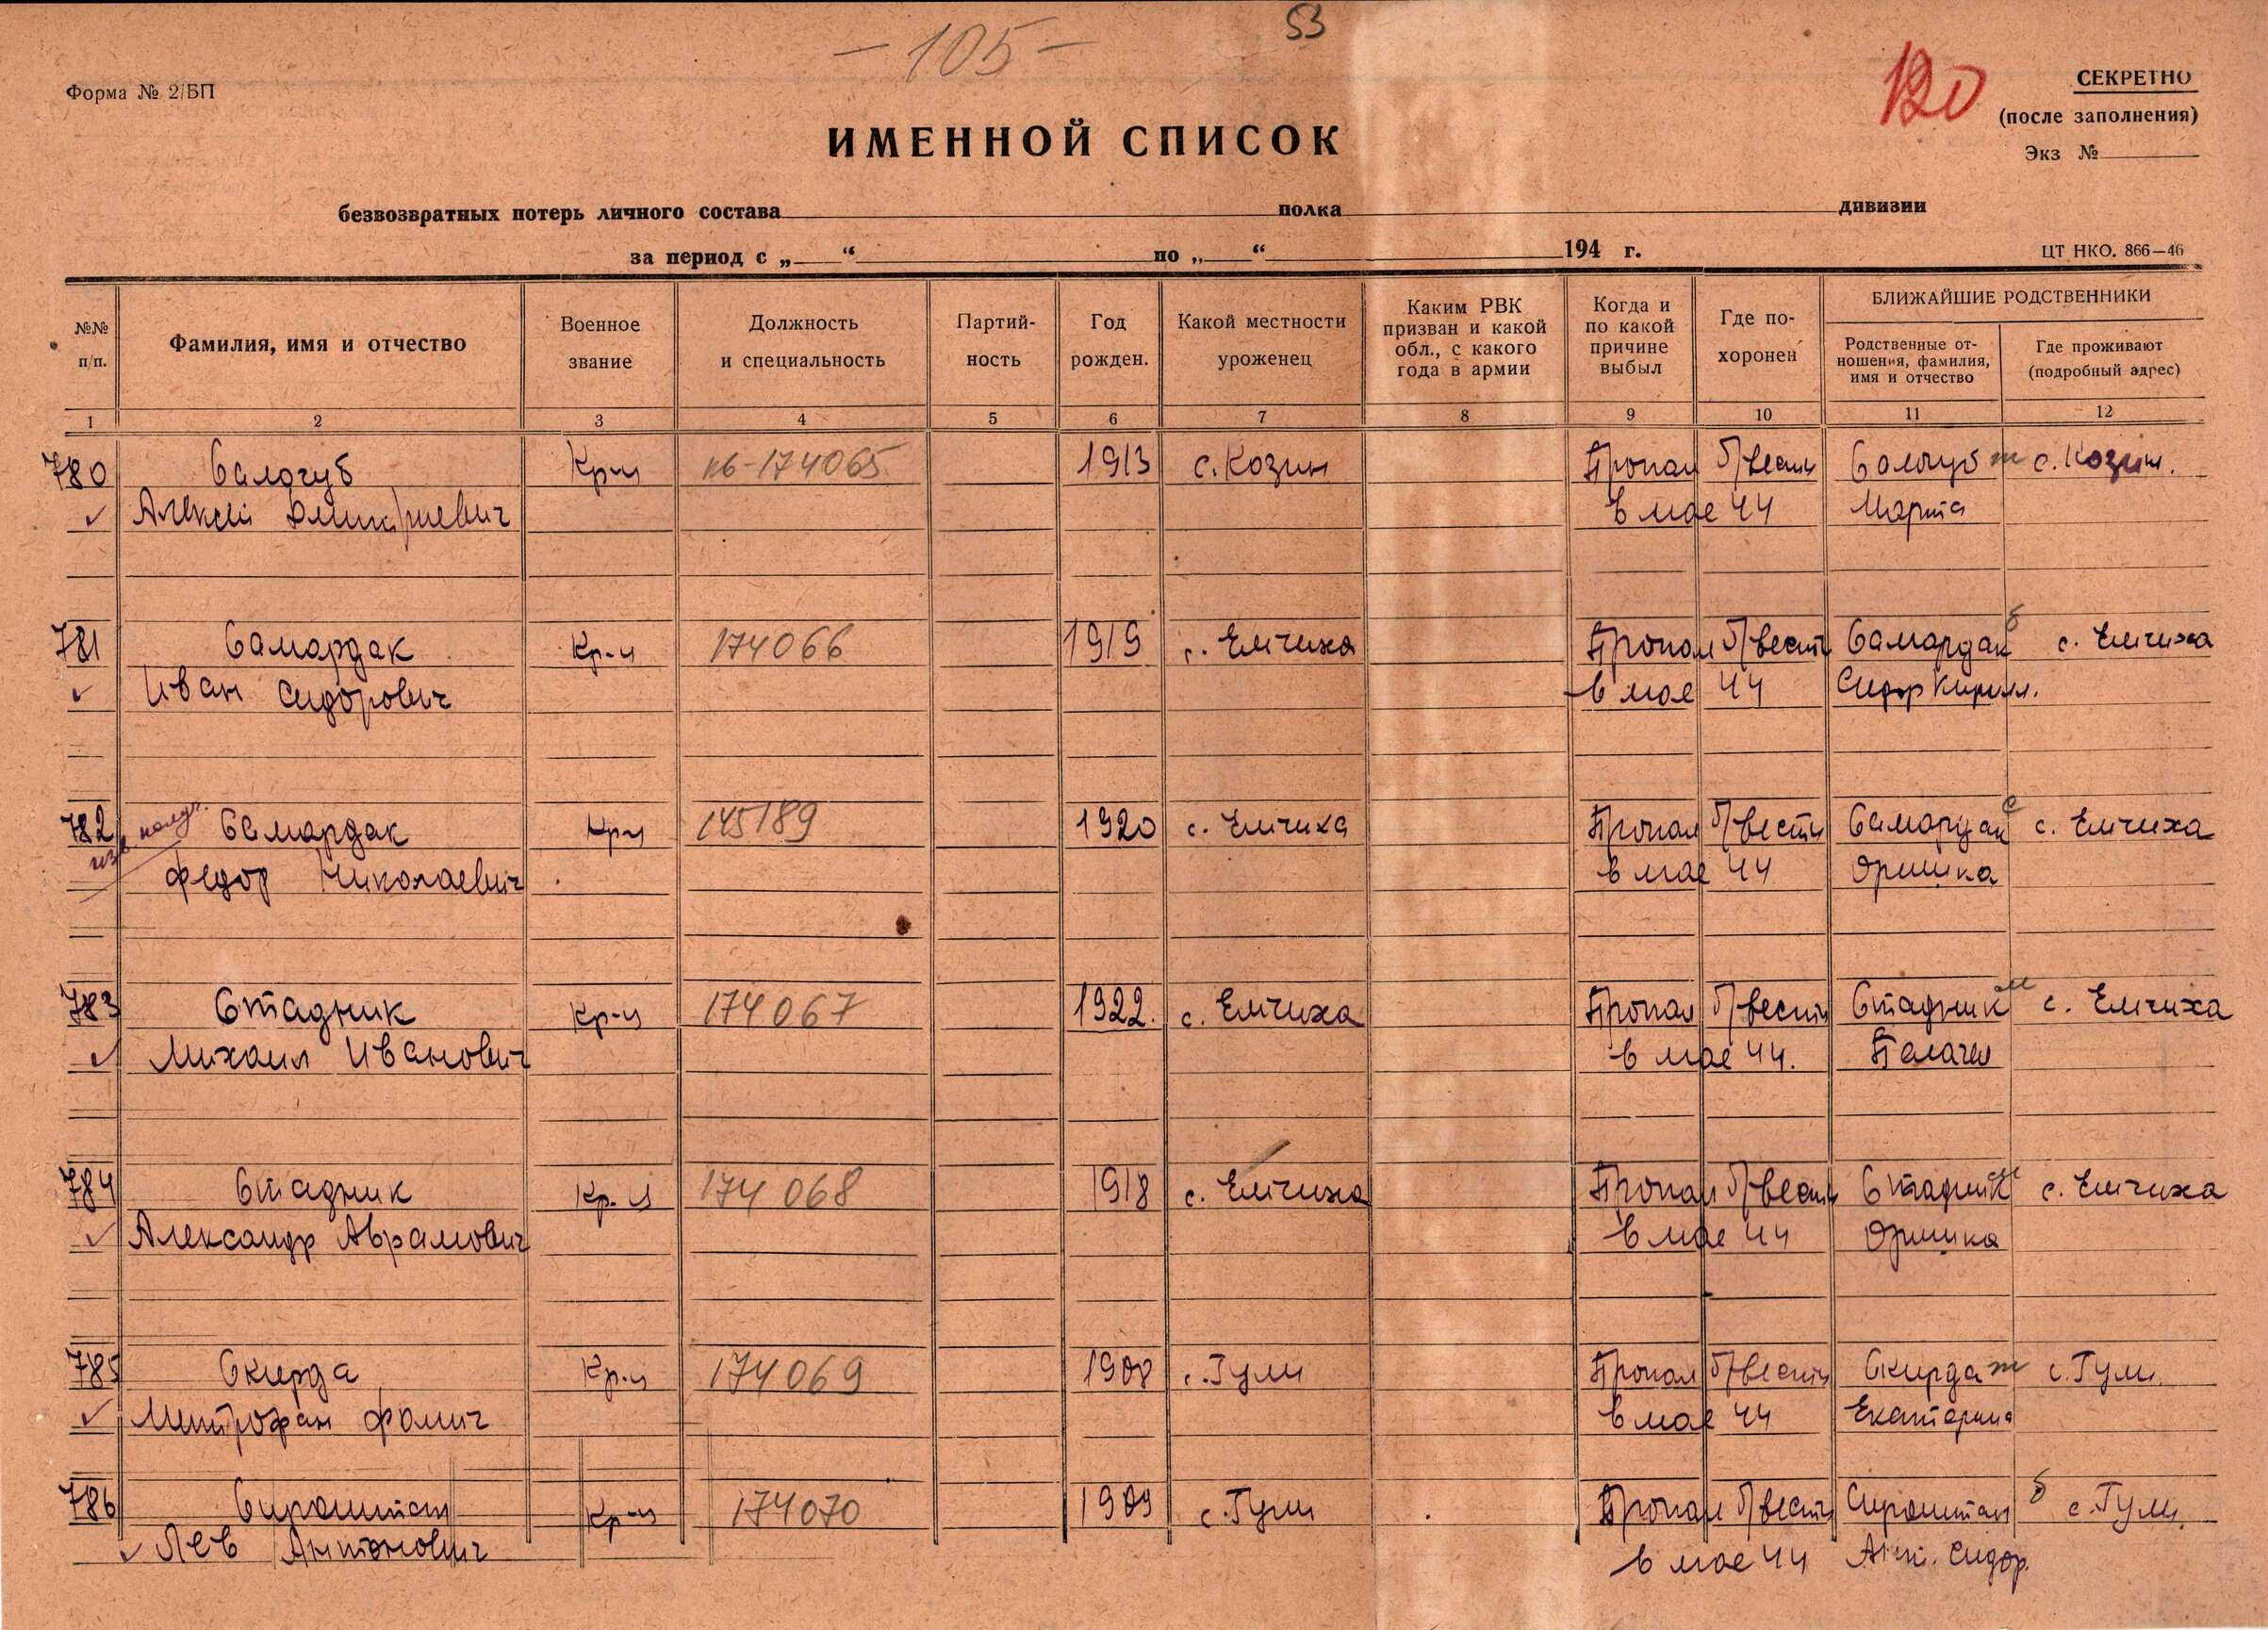 - 105 -
53
120
Форма № 2/БП
СЕКРЕТНО
(после заполнения)
Экз №
ИМЕННОЙ СПИСОК
безвозвратных потерь личного состава полка дивизии
за период с „ “ по „ “ 194 г.
ЦТ НКО. 866—46
№№ п/п.
Фамилия, имя и отчество
Военное звание
Должность и специальность
Партий-ность
Год рожден.
Какой местности уроженец
Каким РВК призван и какой обл., с какого года в армии
Когда и по какой причине выбыл
Где по-хоронен
БЛИЖАЙШИЕ РОДСТВЕННИКИ
Родственные от-ношения, фамилия, имя и отчество
Где проживают (подробный адрес)
1 2 3 4 5 6 7 8 9 10 11 12
780 Салогуб Кр-ц 174065 1913 с. Козин Пропал б/вести Салогуб ж с. Козин.
Алексей Дмитриевич в мае 44 Марта
781 Самардак Кр-ц 174066 1919 с. Емчиха Пропал б/вести Самардак с. Емчиха
Иван Сидорович в мае 44 Сидор Кирилл.
782 Самардак Кр-ц 145189 1920 с. Емчиха Пропал б/вести Самардак с. Емчиха
Федор Николаевич в мае 44 Оришка
783 Стадник Кр-ц 174067 1922. с. Емчиха Пропал б/вести Стадник м с. Емчиха
Михаил Иванович в мае 44. Палагея
784 Стадник Кр-ц 174068 1918 с. Емчиха Пропал б/вести Стадник с. Емчиха
Александр Аврамович в мае 44 Оришка
785 Скирда Кр-ц 174069 1908 с. Гули Пропал б/вести Скирда ж с. Гули
Митрофан Фомич в мае 44 Екатерина
786 Сироштан Кр-ц 174070 1909 с. Гули Пропал б/вести Сироштан с. Гули.
Лев Антонович в мае 44 Ант. Сидор.